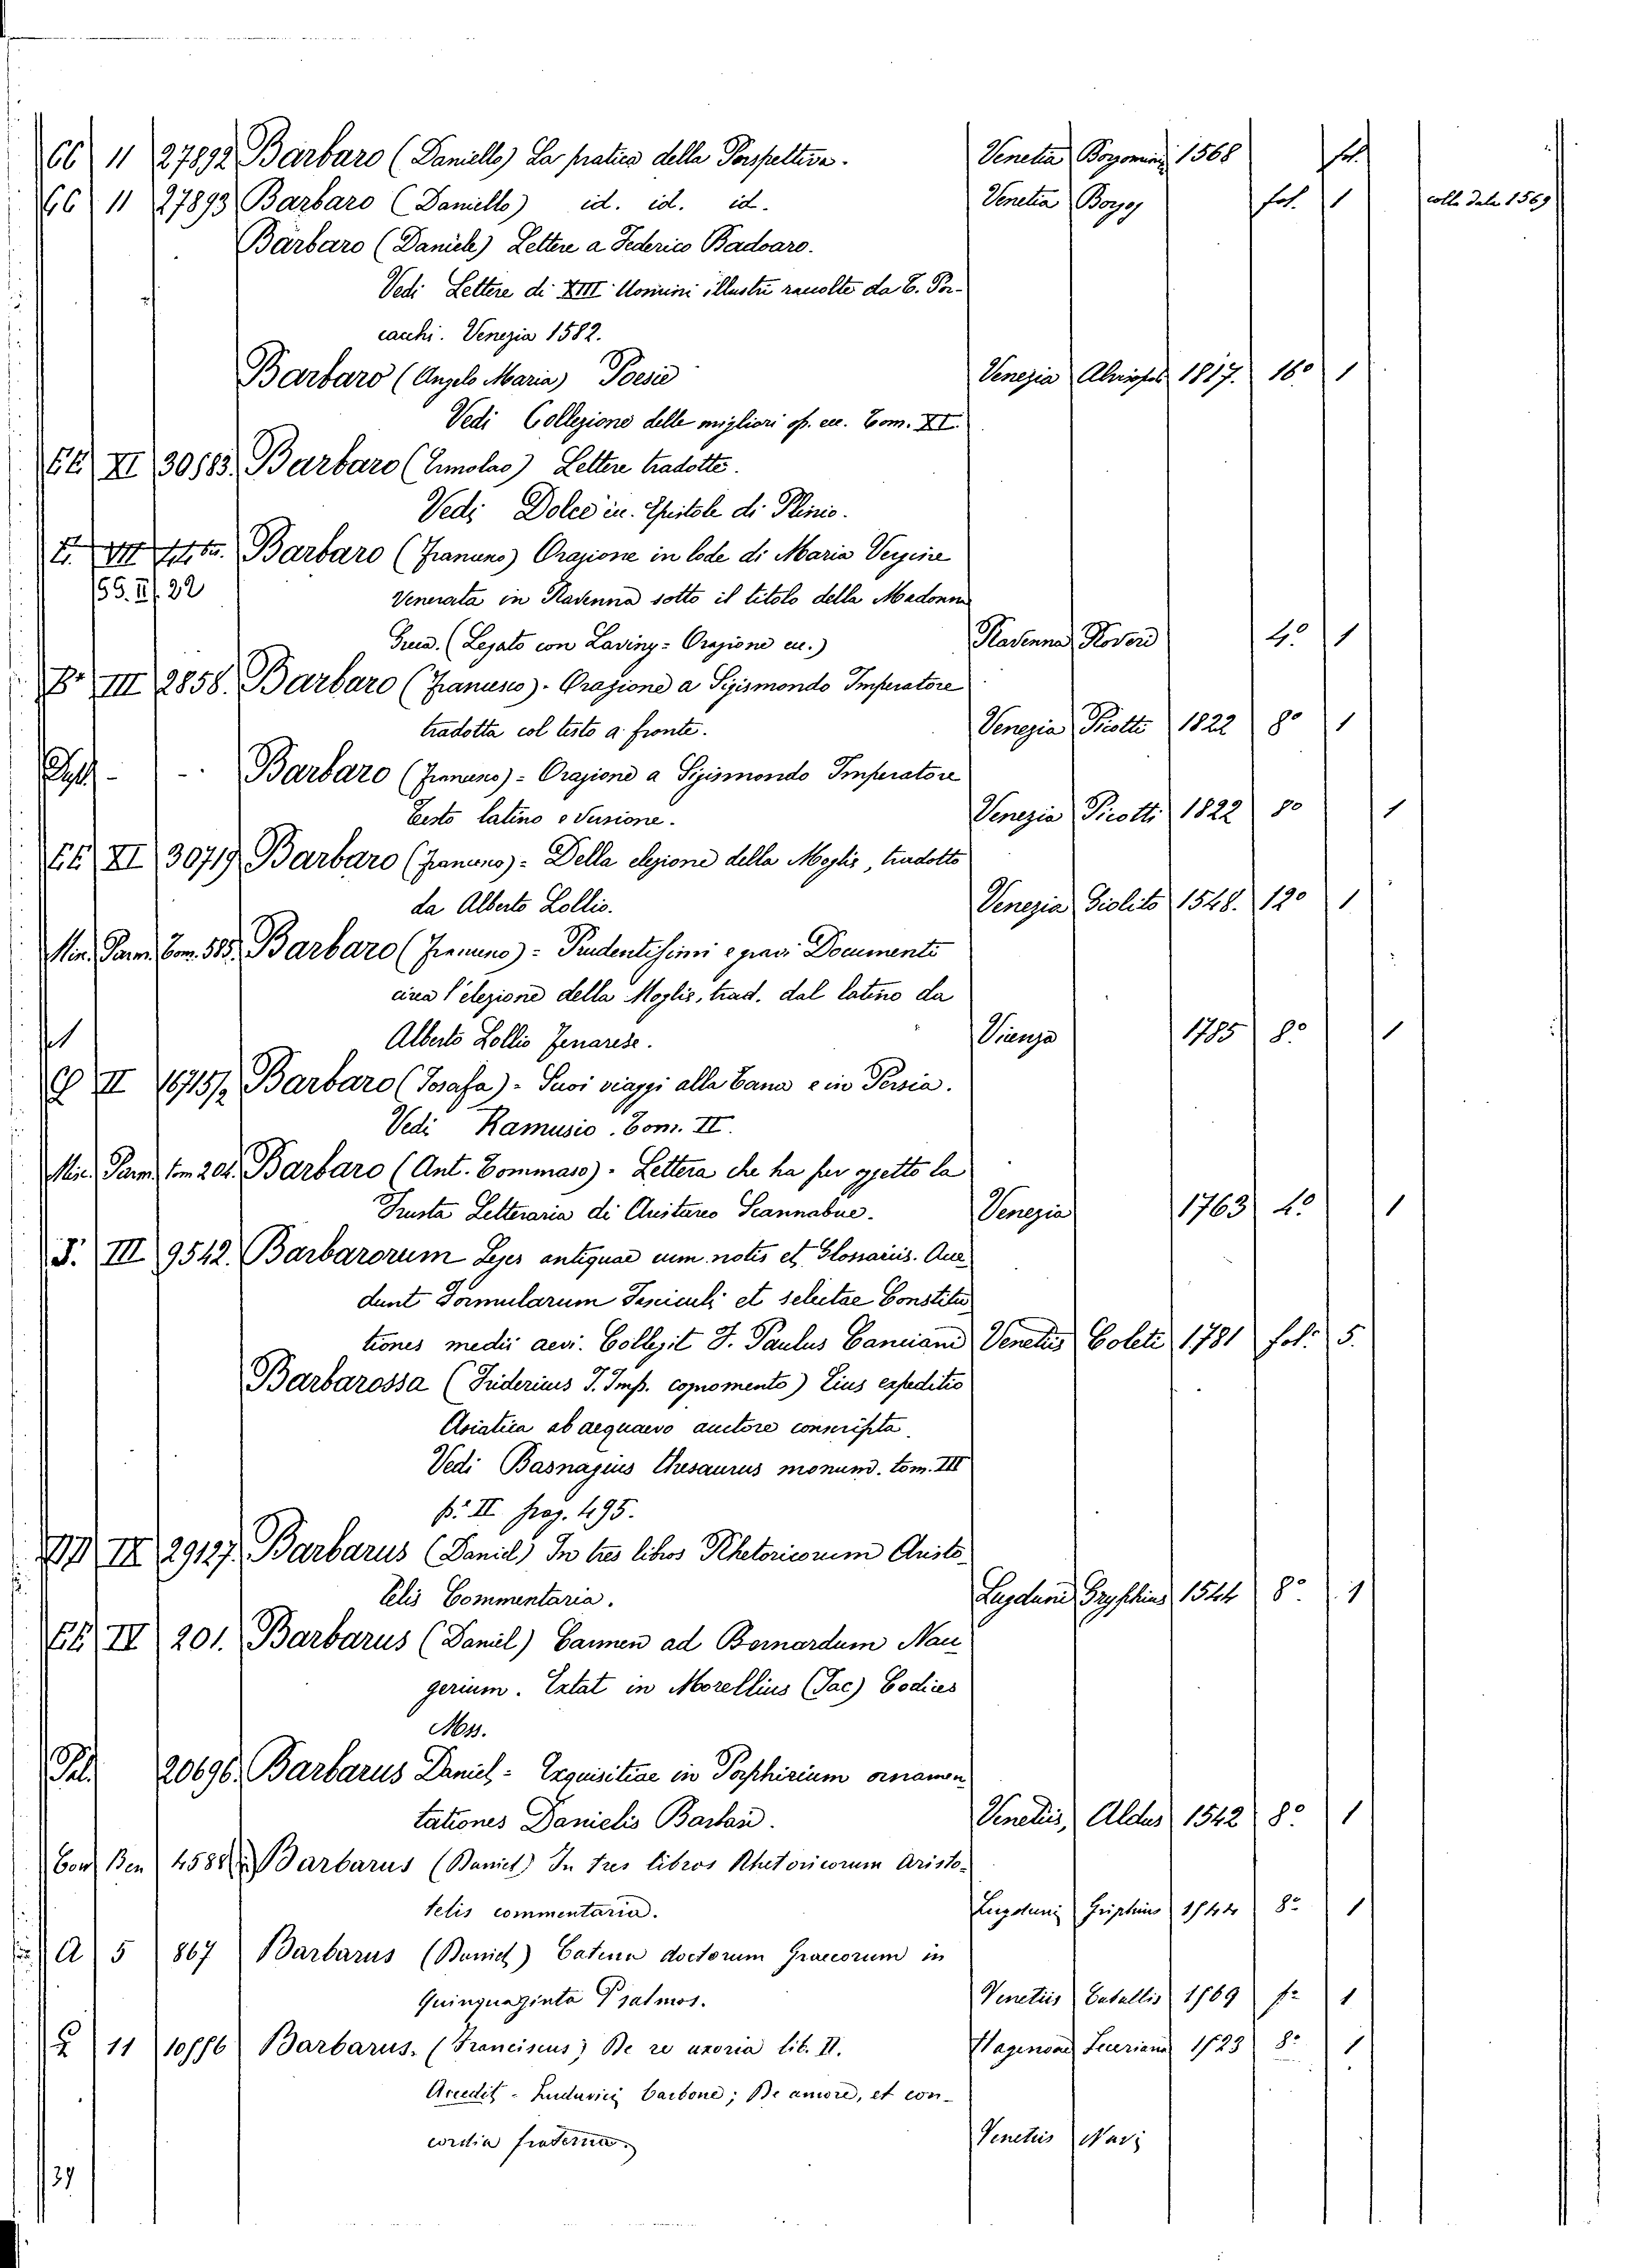 CC 11 27892 Barbaro (Daniello) La pratica della Perspettiva. Venetia Borgomini 1568 fol.
CC 11 27893 Barbaro (Daniello) id. id. id. Venetia Borgo fol. 1 colla data 1569
Barbaro (Daniele) Lettere a Federico Badoaro.
Vedi Lettere di XIII Uomini illustri raccolte da T. Por-
cacchi. Venezia 1582.
Barbaro (Angelo Maria) Poesie Venezia Alvisopoli 1817. 16° 1
Vedi Collezione delle migliori op. ecc. Tom. XI.
EE XI 30583. Barbaro (Ermolao) Lettere tradotte.
Vedi Dolce in. Epistole di Plinio.
Barbaro (Francesco) Orazione in lode di Maria Vergine
155. II. 22 Venerata in Ravenna sotto il titolo della Madonna
Greca. (Legato con Laviny = Orazione ec.) Ravenna Roveri 4° 1
B III 2858. Barbaro (Francesco) - Orazione a Sigismondo Imperatore
tradotta col testo a fronte. Venezia Picotti 1822 8° 1
- - Barbaro (Francesco) = Orazione a Sigismondo Imperatore
Testo latino e Versione. Venezia Picotti 1822 8° 1
EE XI 30719 Barbaro (Francesco) = Della elezione della Moglie, tradotto
da Alberto Lollio. Venezia Giolito 1548. 12° 1
Min. Parm. Tom. 585. Barbaro (Francesco) = Prudentissimi e gravi Documenti
circa l'elezione della Moglie, trad. dal latino da
Alberto Lollio Ferrarese. Vicenza 1785 8° 1
II 16715/2 Barbaro (Josafa) - Suoi viaggi alla Tana e in Persia.
Vedi Ramusio. Tom. II.
Min. Parm. tom 204. Barbaro (Ant. Tommaso) - Lettera che ha per oggetto la
Frusta Letteraria di Aristarco Scannabue. Venezia 1763 4° 1
J. III 9542. Barbarorum Leges antiquae cum notis et Glossariis. Acce
dunt Formularum Fasciculi et selectae Constitu
tiones medii aevi. Collegit F. Paulus Canciani Venetiis Coleti 1781 fol. 5.
Barbarossa (Fridericus I. Imp. cognomento) Eius expeditio
Asiatica ab aequaevo auctore conscripta.
Vedi Basnagius Thesaurus monum. tom. III
p. II pag. 495.
PP IX 29127. Barbarus (Daniel) In tres libros Rhetoricorum Aristo-
telis Commentaria. Lugduni Gryphius 1544 8° 1
EE IV 201. Barbarus (Daniel) Carmen ad Bernardum Nau
gerium. Extat in Morellius (Jac) Codices
Mss.
Pal. 20696. Barbarus Daniel - Exquisitiae in Porphirium ornamen
tationes Danielis Barbari. Venetiis, Aldus 1542 8° 1
Con Ben 4588 Barbarus (Daniel) In tres libros Rhetoricorum Aristo-
telis commentaria. Lugduni Griphius 1544 8° 1
A 5 867 Barbarus (Daniel) Catena doctorum Graecorum in
Quinquaginta Psalmos. Venetiis 1569 f° 1
11 10586 Barbarus. (Franciscus) De re uxoria lib. II. Hagenoae Secerianu 1523 8° 1
Accedit - Ludovici Carbone; De amore, et con-
cordia fraterna. Venetiis Navi
39